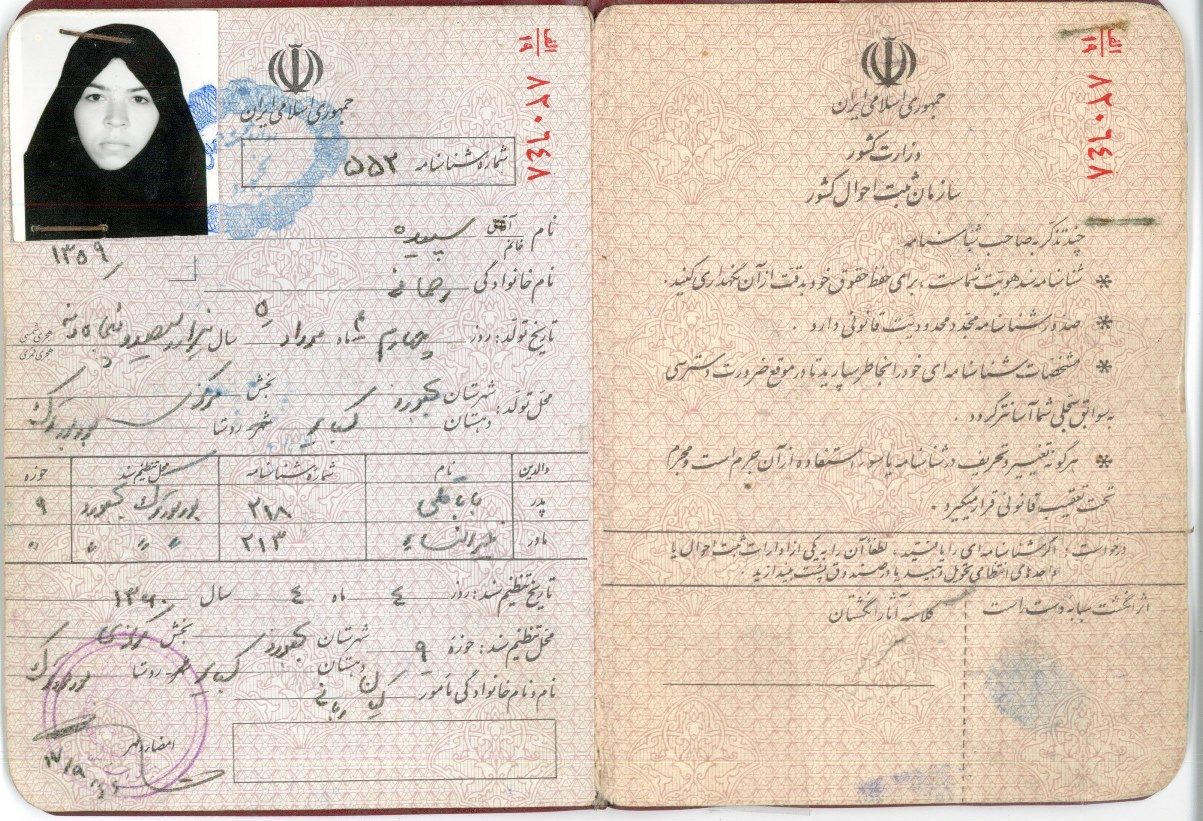 جمهوری اسلامی ایران
الف
۱۹
۸۲۰۶۴۸
شمارهٔ شناسنامه ۵۵۲
نام آقای خانم سپیده
نام خانوادگی رضائی
۱۳۵۹
تاریخ تولد: روز چهارم ماه مرداد سال هزار و سیصد و
هجری شمسی
هجری قمری
محل تولد: شهرستان بجنورد بخش مرکزی
دهستان شهر روستا
والدین نام شمارهٔ شناسنامه محل تنظیم سند حوزه
پدر باباعلی ۲۱۸ بجنورد ۹
مادر خیرالنساء ۲۱۳ " " " "
تاریخ تنظیم سند: روز ٤ ماه ٤ سال ۱۳۶۰
محل تنظیم سند: حوزهٔ ۹ شهرستان بجنورد بخش مرکزی
دهستان شهر روستا
نام و نام خانوادگی مأمور
امضاء و مهر
الف
۱۹
۸۲۰۶۴۸
جمهوری اسلامی ایران
وزارت کشور
سازمان ثبت احوال کشور
چند تذکر به صاحب شناسنامه
* شناسنامه سند هویت شماست، برای حفظ حقوق خود بدقت از آن نگهداری کنید.
* صدور شناسنامه مجدد محدودیت قانونی دارد.
* مشخصات شناسنامه ای خود را بخاطر بسپارید تا در موقع ضرورت دسترسی
به سوابق سجلی شما آسانتر گردد.
* هرگونه تغییر و تحریف در شناسنامه یا سوء استفاده از آن جرم است و مجرم
تحت تعقیب قانونی قرار میگیرد.
درخواست: اگر شناسنامه ای را یافتید، لطفاً آن را به یکی از ادارات ثبت احوال یا
واحدهای انتظامی تحویل دهید یا در صندوق پست بیندازید.
اثر انگشت سبابه دست راست
کلاسه آثار انگشتان